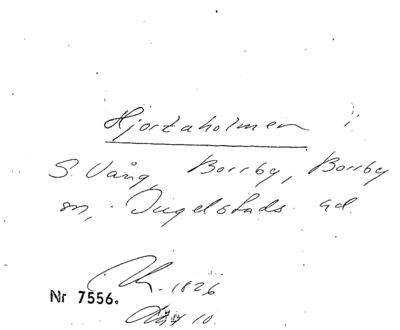 Hjortaholmen i
S. Vång, Borrby, Borrby
sn, Ingelstads hd.
1826
Nr 7556.
10.